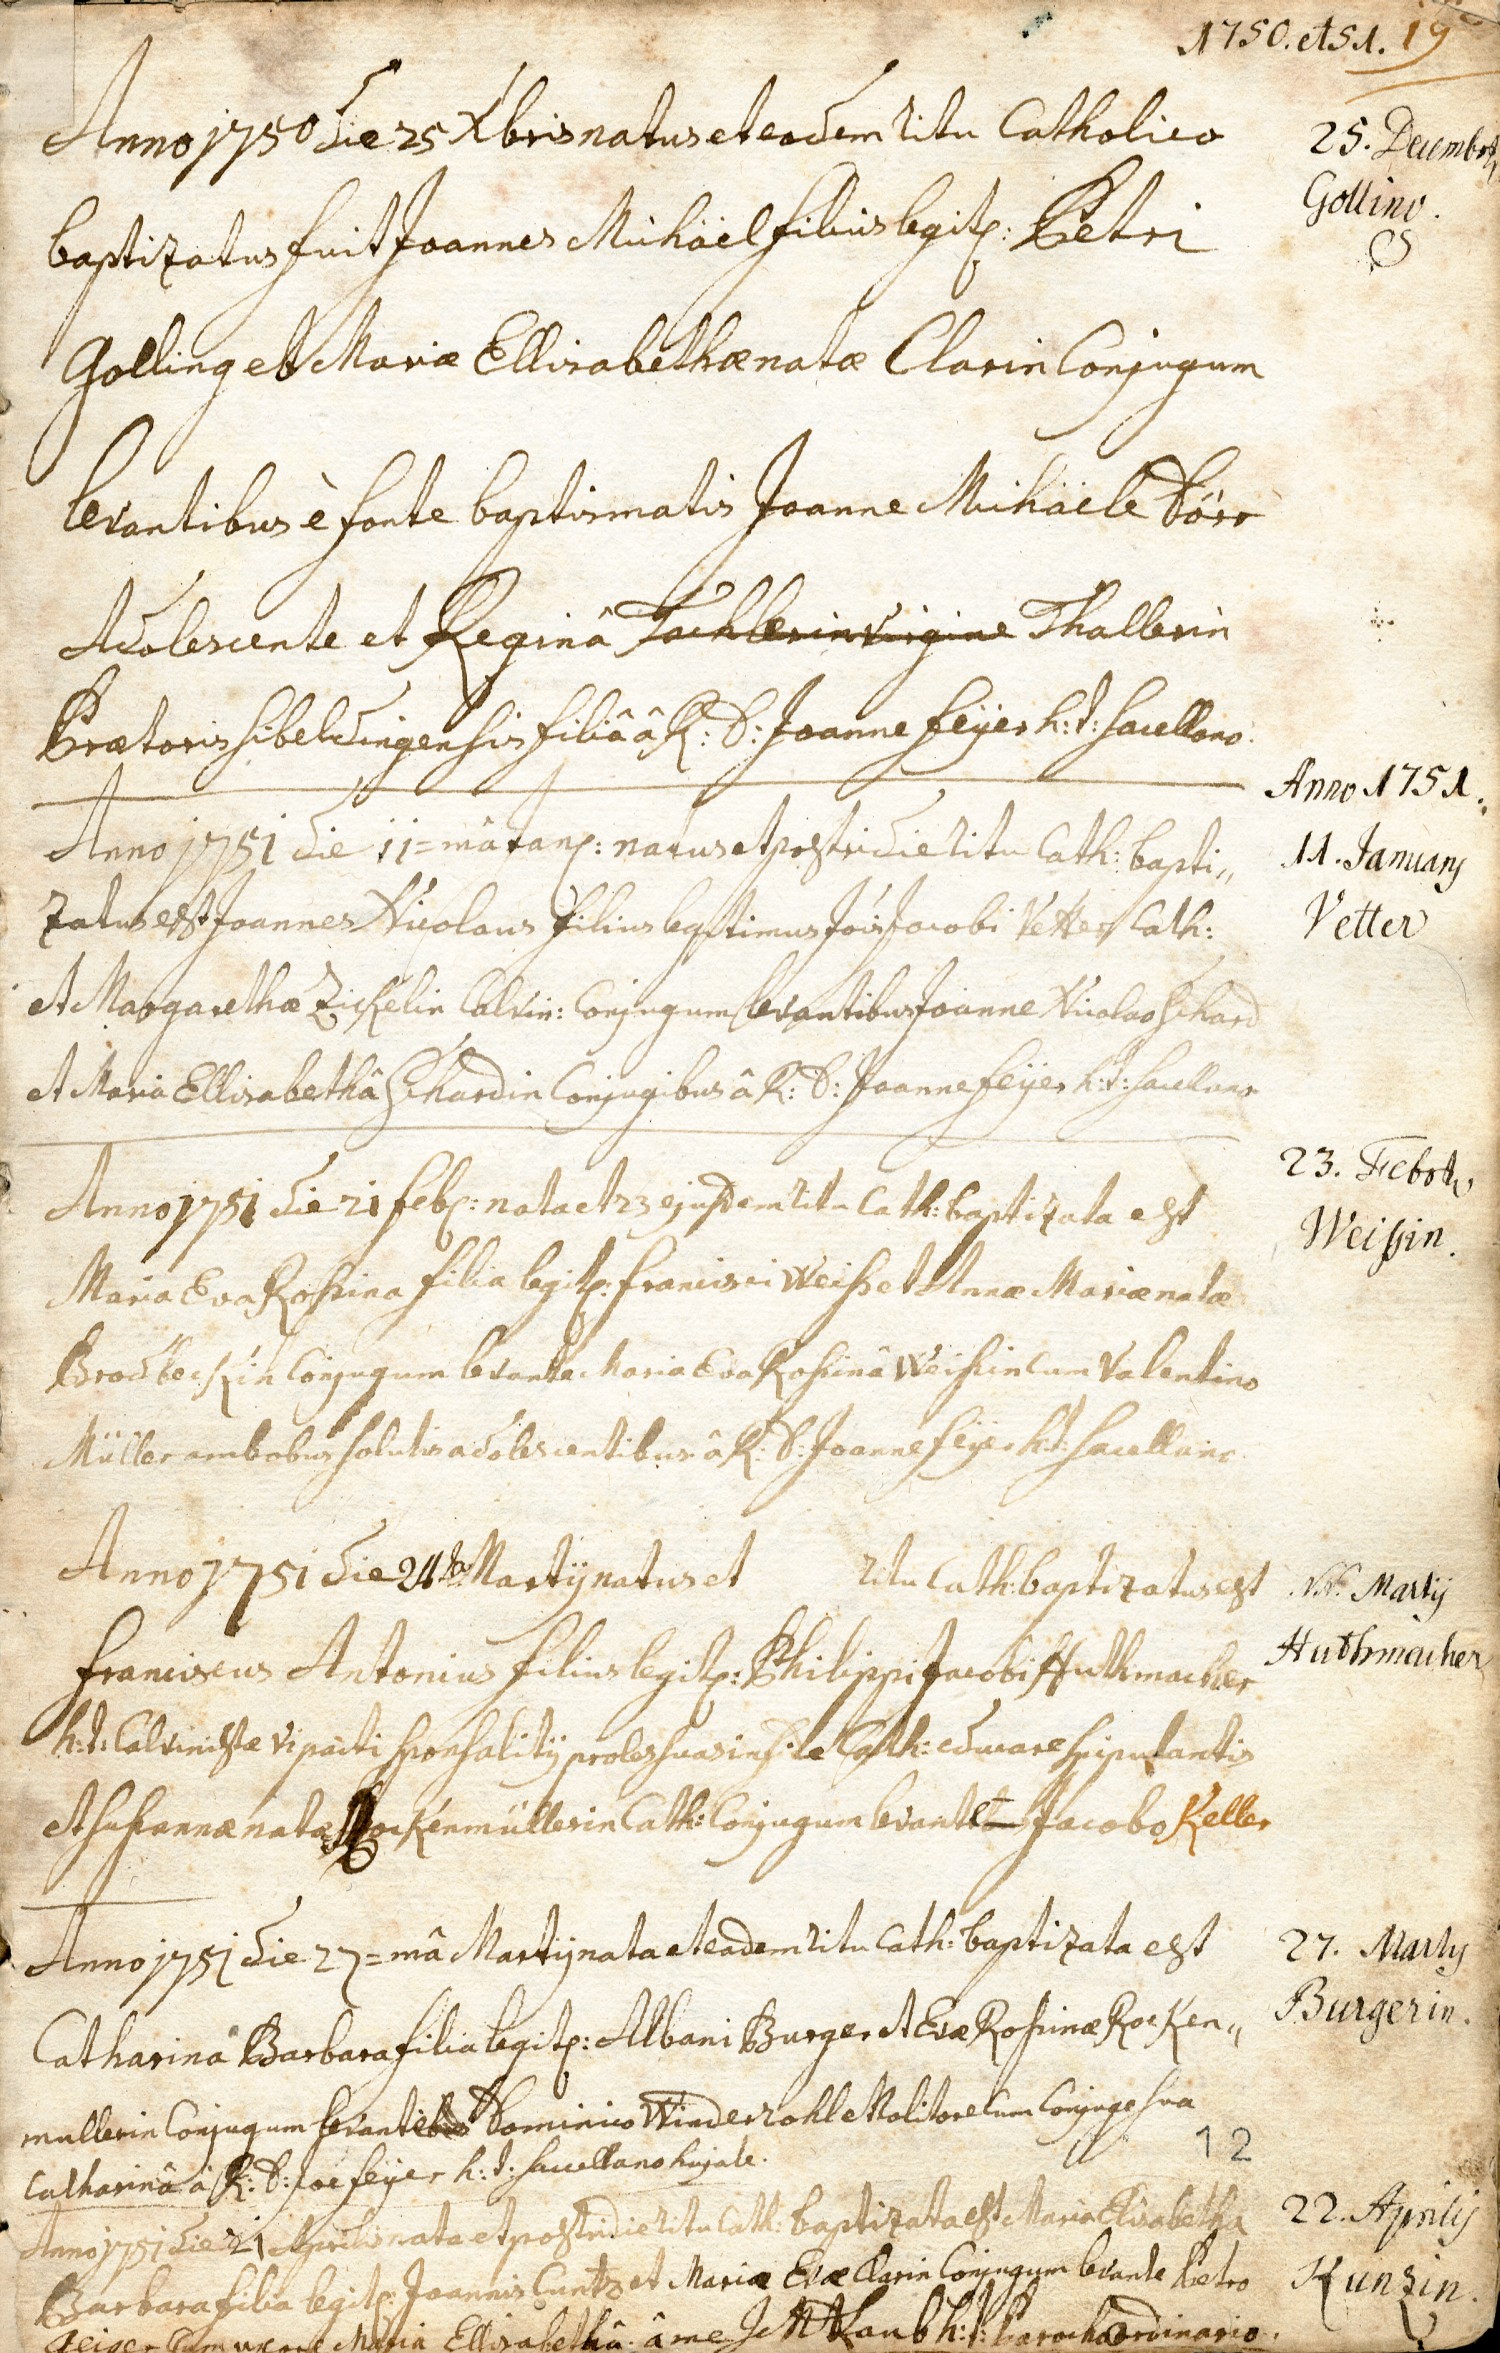 1750. et 51. 19
Anno 1750 die 25 Xbris natus et eodem ritu Catholico
25. Decembris
baptizatus fuit Joannes Michäel filius legit: Petri
Golling.
Golling et Mariæ Ellisabethæ natæ Clarin Conjugum
levantibus è fonte baptismatis Joanne Michäele Dörr
Adolescente et Reginâ Thallerin
Prætoris Sibeldingensis filiâ â R: D: Joanne Feÿer h: t: sacellano.
Anno 1751.
Anno 1751 die 11=mâ Jan: natus et postridie ritu Cath: bapti„
11. January
zatus est Joannes Nicolaus filius legitimus Jois Jacobi Vetter Cath:
Vetter
et Margarethæ Zickelin Calvin: Conjugum levantibus Joanne Nicolao Schard
et Maria Ellisabethâ Schardin Conjugibus â R: D: Joanne Feÿer h: t: sacellano
Anno 1751 die 21 Feb: nata et 23 ejusdem ritu Cath: baptizata est
23. Febr
Maria Eva Rossina filia legit: Francisci Weiss et Annæ Mariæ natæ
Weissin.
Brodbeckin Conjugum levante Maria Eva Rossinâ Weissin cum Valentino
Müller ambobus solutis adolescentibus â R: D: Joanne Feÿer h: t: sacellano
Anno 1751 die 24ta Martÿ natus et ritu Cath: baptizatus est
N.N. Martÿ
Franciscus Antonius filius legit: Philippi Jacobi Huthmacher
Huthmacher
h: t: Calvinistæ vi pacti sponsalitÿ proles suas in fide Cath: educare stipulantis
et Susannæ natæ Rockenmüllerin Cath: Conjugum levante Jacobo Keller
Anno 1751 die 27=mâ Martÿ nata et eadem ritu Cath: baptizata est
27. Martÿ
Catharina Barbara filia legit: Albani Burger et Evæ Rossinæ Rocken„
Burgerin.
mullerin Conjugum levantibus Dominico Winderzohl Molitore cum Conjuge sua
12
Catharinâ â R: D: Joe Feÿer h: t: sacellano hujate.
Anno 1751 die 21 Aprilis nata et postridie ritu Cath: baptizata est Maria Elisabetha
22. Aprilis
Barbara filia legit: Joannis Cuntz et Mariæ Evæ Clarin Conjugum levante Petro
Kunzin.
Geiger cum uxore Maria Ellisabethâ. â me J M Laub h: t: Parocho ordinario.